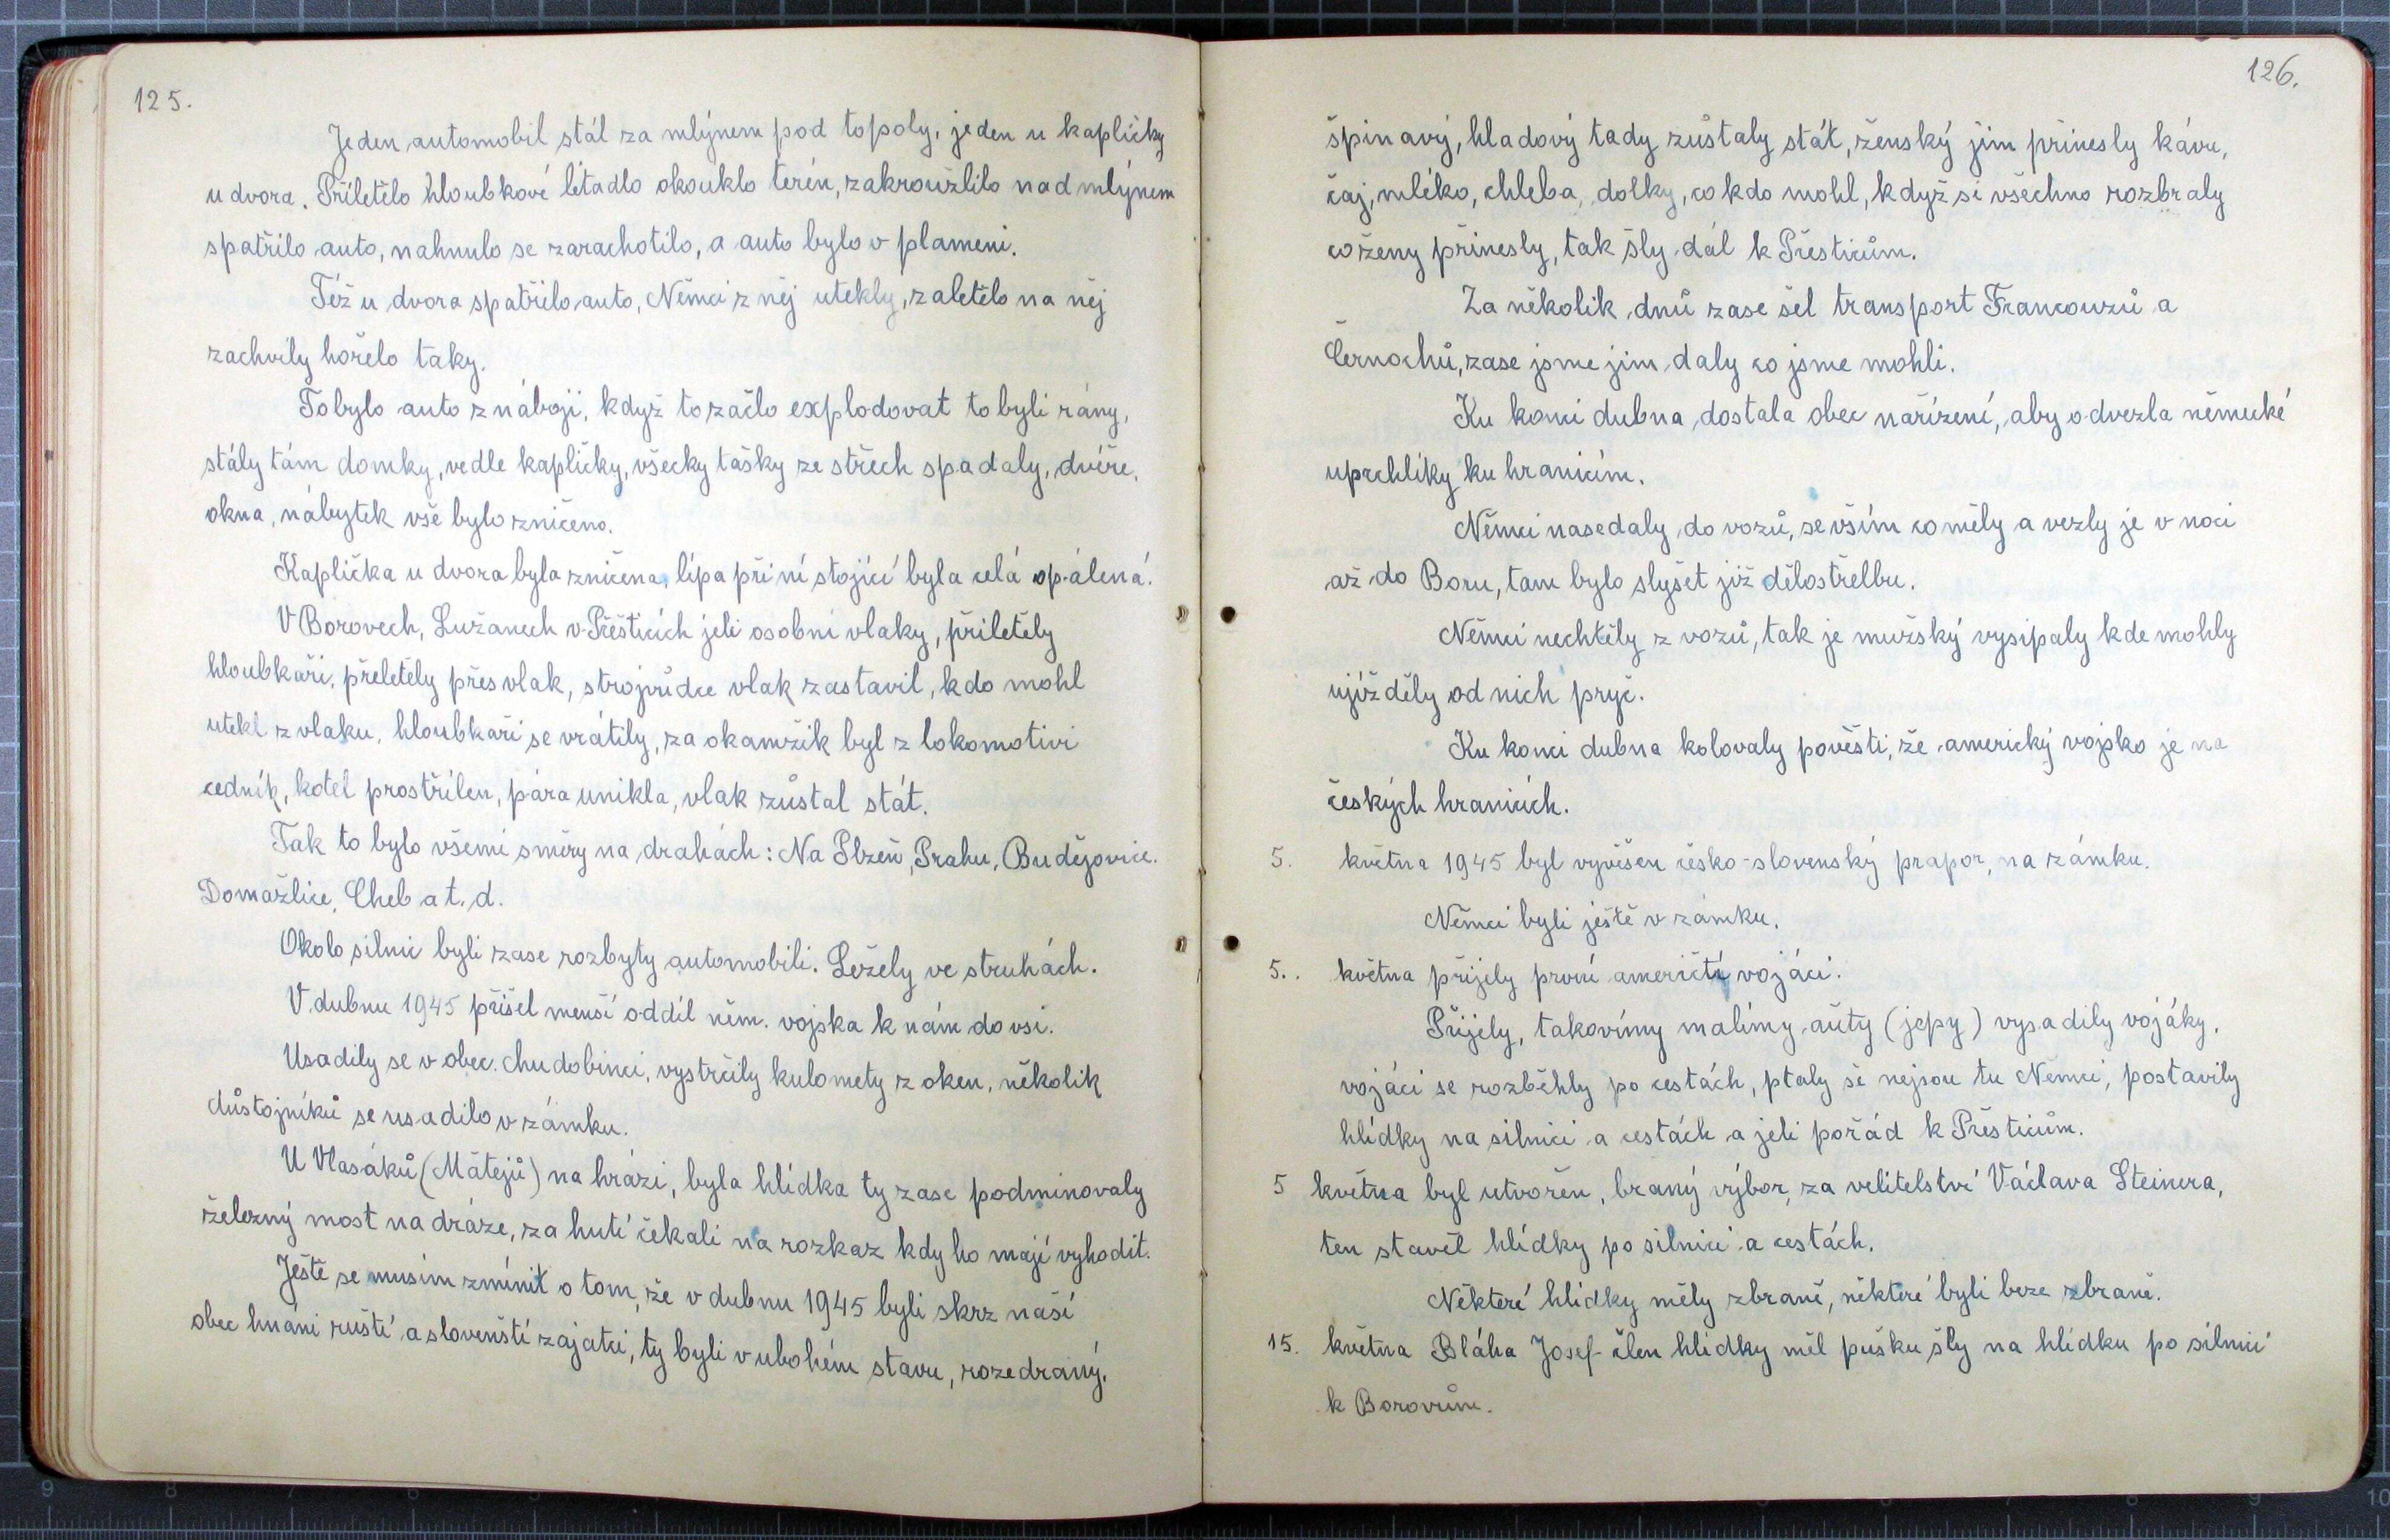 125.
Jeden automobil stál za mlýnem pod topoly, jeden u kapličky
u dvora. Přiletělo hloubkové létadlo okouklo terén, zakroužlilo nad mlýnem
spatřilo auto, nahnulo se zarachotilo, a auto bylo v plameni.
Též u dvora spatřilo auto, Němci z něj utekly, zaletělo na něj
zachvíly hořelo taky.
To bylo auto z náboji, když to začlo explodovat to byli rány,
stály tám domky, vedle kapličky, všecky tašky ze střech spadaly, dvéře,
okna, nábytek vše bylo zničeno.
Kaplička u dvora byla zničena, lípa při ní stojící byla celá opálená.
V Borovech, Lužanech v Přěšticích jeli osobní vlaky, přiletěly
hloubkaři, přeletěly přes vlak, strojvůdce vlak zastavil, kdo mohl
utekl z vlaku, hloubkaři se vrátily, za okamžik byl z lokomotivi
cedník, kotel prostřílen, pára unikla, vlak zůstal stát.
Tak to bylo všemi směry na drahách: Na Plzeň, Prahu, Budějovice.
Domažlice, Cheb a t. d.
Okolo silnic byli zase rozbyty automobili. Ležely ve struhách.
V dubnu 1945 přišel menší oddíl něm. vojska k nám do vsi.
Usadily se v obec. chudobinci, vystrčily kulomety z oken, několik
důstojníků se usadilo v zámku.
U Vlasáků (Mátejů) na hrázi, byla hlídka ty zase podminovaly
železný most na dráze, za hutí čekali na rozkaz kdy ho mají vyhodit.
Ještě se musím zmínit o tom, že v dubnu 1945 byli skrz naší
obec hnáni ruští a slovenští zajatci, ty byli v ubohém stavu, rozedraný,
126.
špinavý, hladový tady zůstaly stát, ženský jim přinesly kávu,
čaj, mléko, chleba, dolky, co kdo mohl, když si všechno rozbraly
co ženy přinesly, tak šly dál k Přesticům.
Za několik dnů zase šel transport Francouzů a
Černochů, zase jsme jim daly co jsme mohli.
Ku konci dubna dostala obec nařízení, aby odvezla německé
uprchlíky ku hranicím.
Němci nasedaly do vozů, se vším co měly a vezly je v noci
až do Boru, tam bylo slyšet již dělostřelbu.
Němci nechtěly z vozů, tak je mužský vysipaly kde mohly
ujížděly od nich pryč.
Ku konci dubna kolovaly pověsti, že americký vojsko je na
českých hranicích.
5. května 1945 byl vyvěšen česko-slovenský prapor, na zámku.
Němci byli ještě v zámku.
5.. května přijely první američtí vojáci.
Přijely, takovímy malímy auty (jepy) vysadily vojáky,
vojáci se rozběhly po cestách, ptaly se nejsou tu Němci, postavily
hlídky na silnici a cestách a jeli pořád k Přěsticům.
5 května byl utvořen, braný výbor, za velitelství Václava Steinera,
ten stavěl hlídky po silnici a cestách.
Některé hlídky měly zbraně, některé byli beze zbraně.
15. května Bláha Josef člen hlídky měl pušku šly na hlídku po silnici
k Borovům.